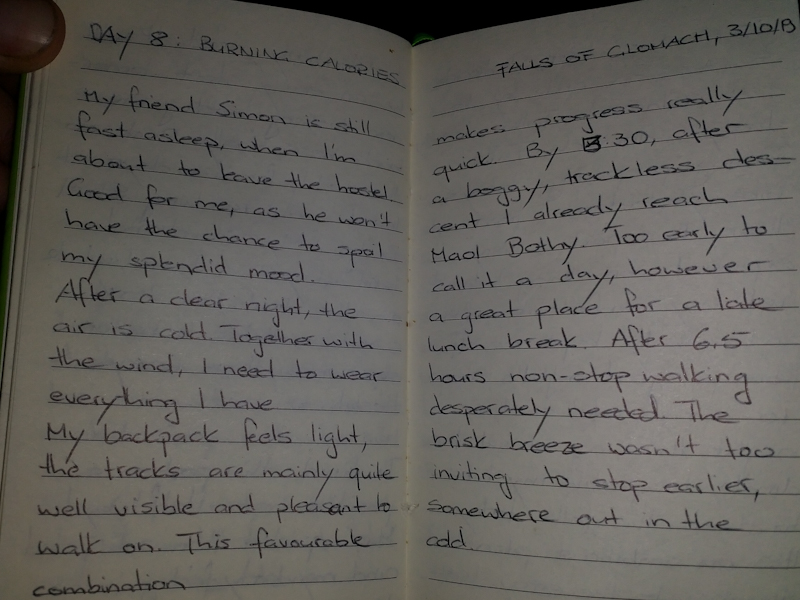 DAY 8: BURNING CALORIES
My friend Simon is still
fast asleep, when I'm
about to leave the hostel.
Good for me, as he won't
have the chance to spoil
my splendid mood.
After a clear night, the
air is cold. Together with
the wind, I need to wear
everything I have
My backpack feels light,
the tracks are mainly quite
well visible and pleasant to
walk on. This favourable
combination
FALLS OF GLOMACH, 3/10/13
makes progress really
quick. By :30, after
a boggy, trackless des-
cent I already reach
Maol Bothy. Too early to
call it a day, however
a great place for a late
lunch break. After 6,5
hours non-stop walking
desperately needed. The
brisk breeze wasn't too
inviting to stop earlier,
somewhere out in the
cold.